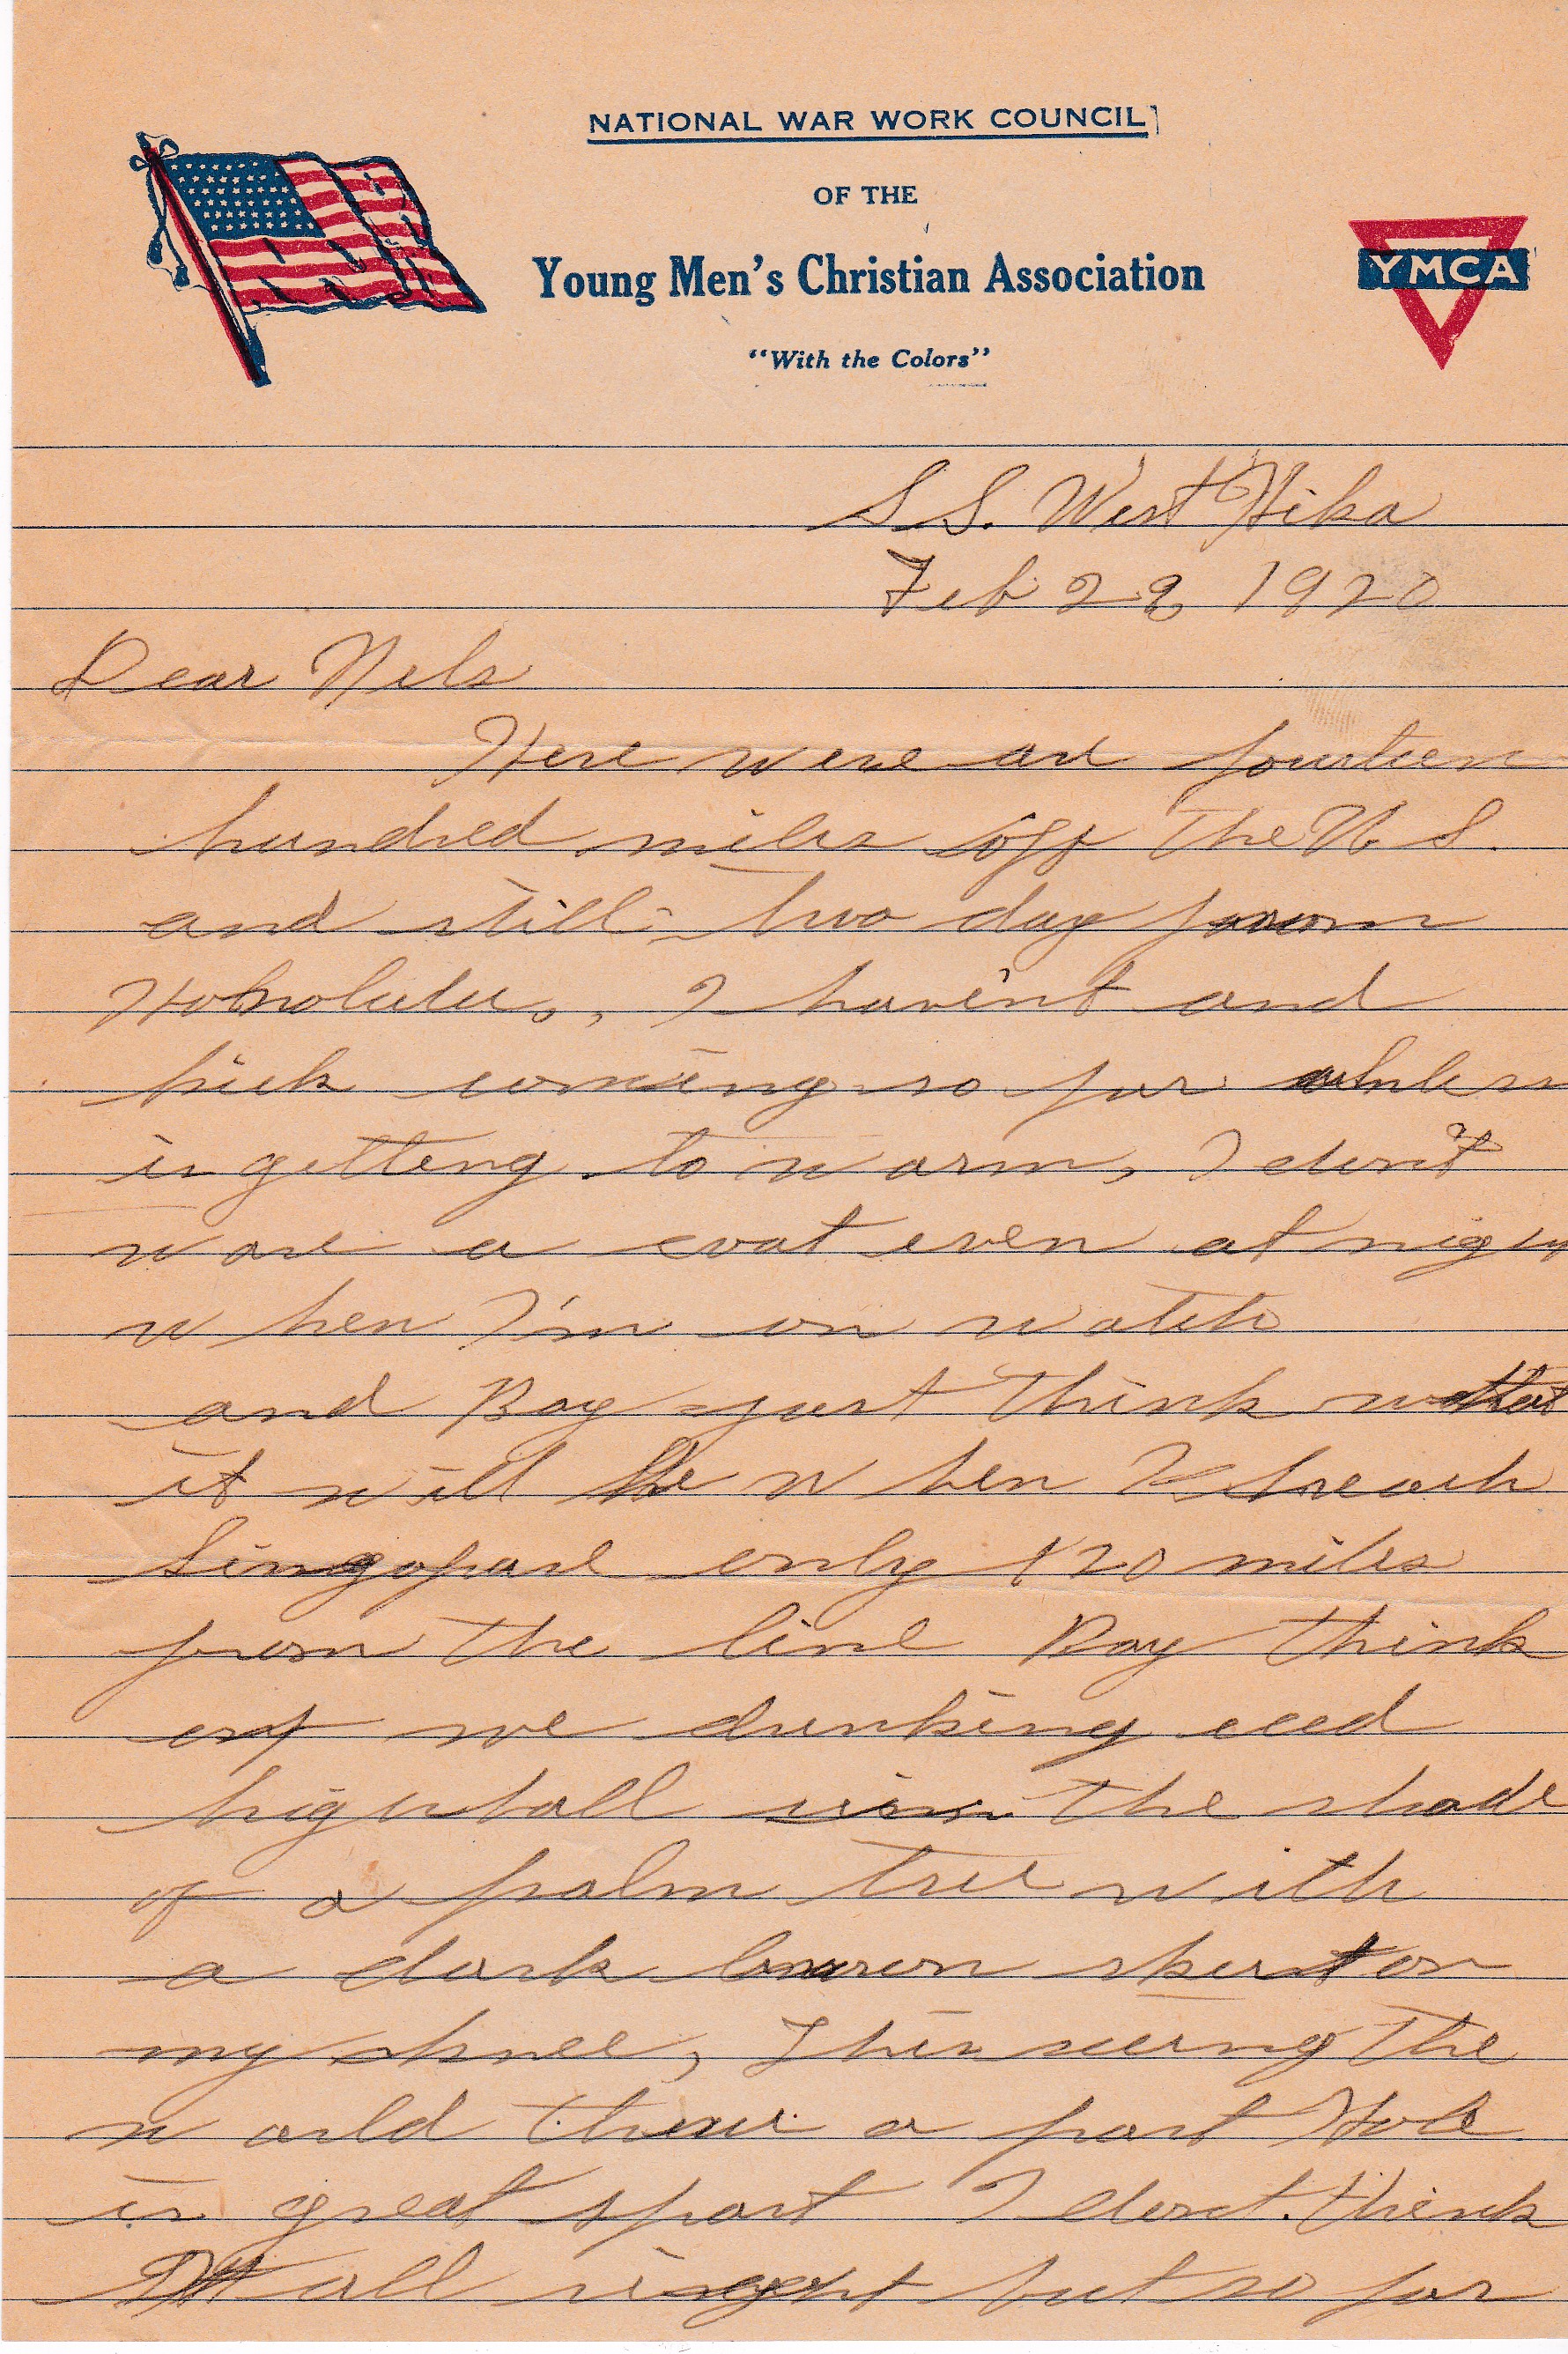 NATIONAL WAR WORK COUNCIL
OF THE
Young Men's Christian Association
"With the Colors"
YMCA
S S. West Hika
Feb 28 1920
Dear Nels
Here were are fourteen
hundred miles off the U S.
and still two day from
Honolulu., I havin't and
kick coming so far
is getteng to warm, I don't
ware a coat even at nigh
when I'm on watch
and Boy just think what
it will be when I reach
Singopare only 120 miles
from the line Boy think
of me drinking ced
highball in the shade
of a palm tree with
a dark brown skirt on
my knee, This seeing the
world threw a port Hole
is great sport I dont think
all right but so far